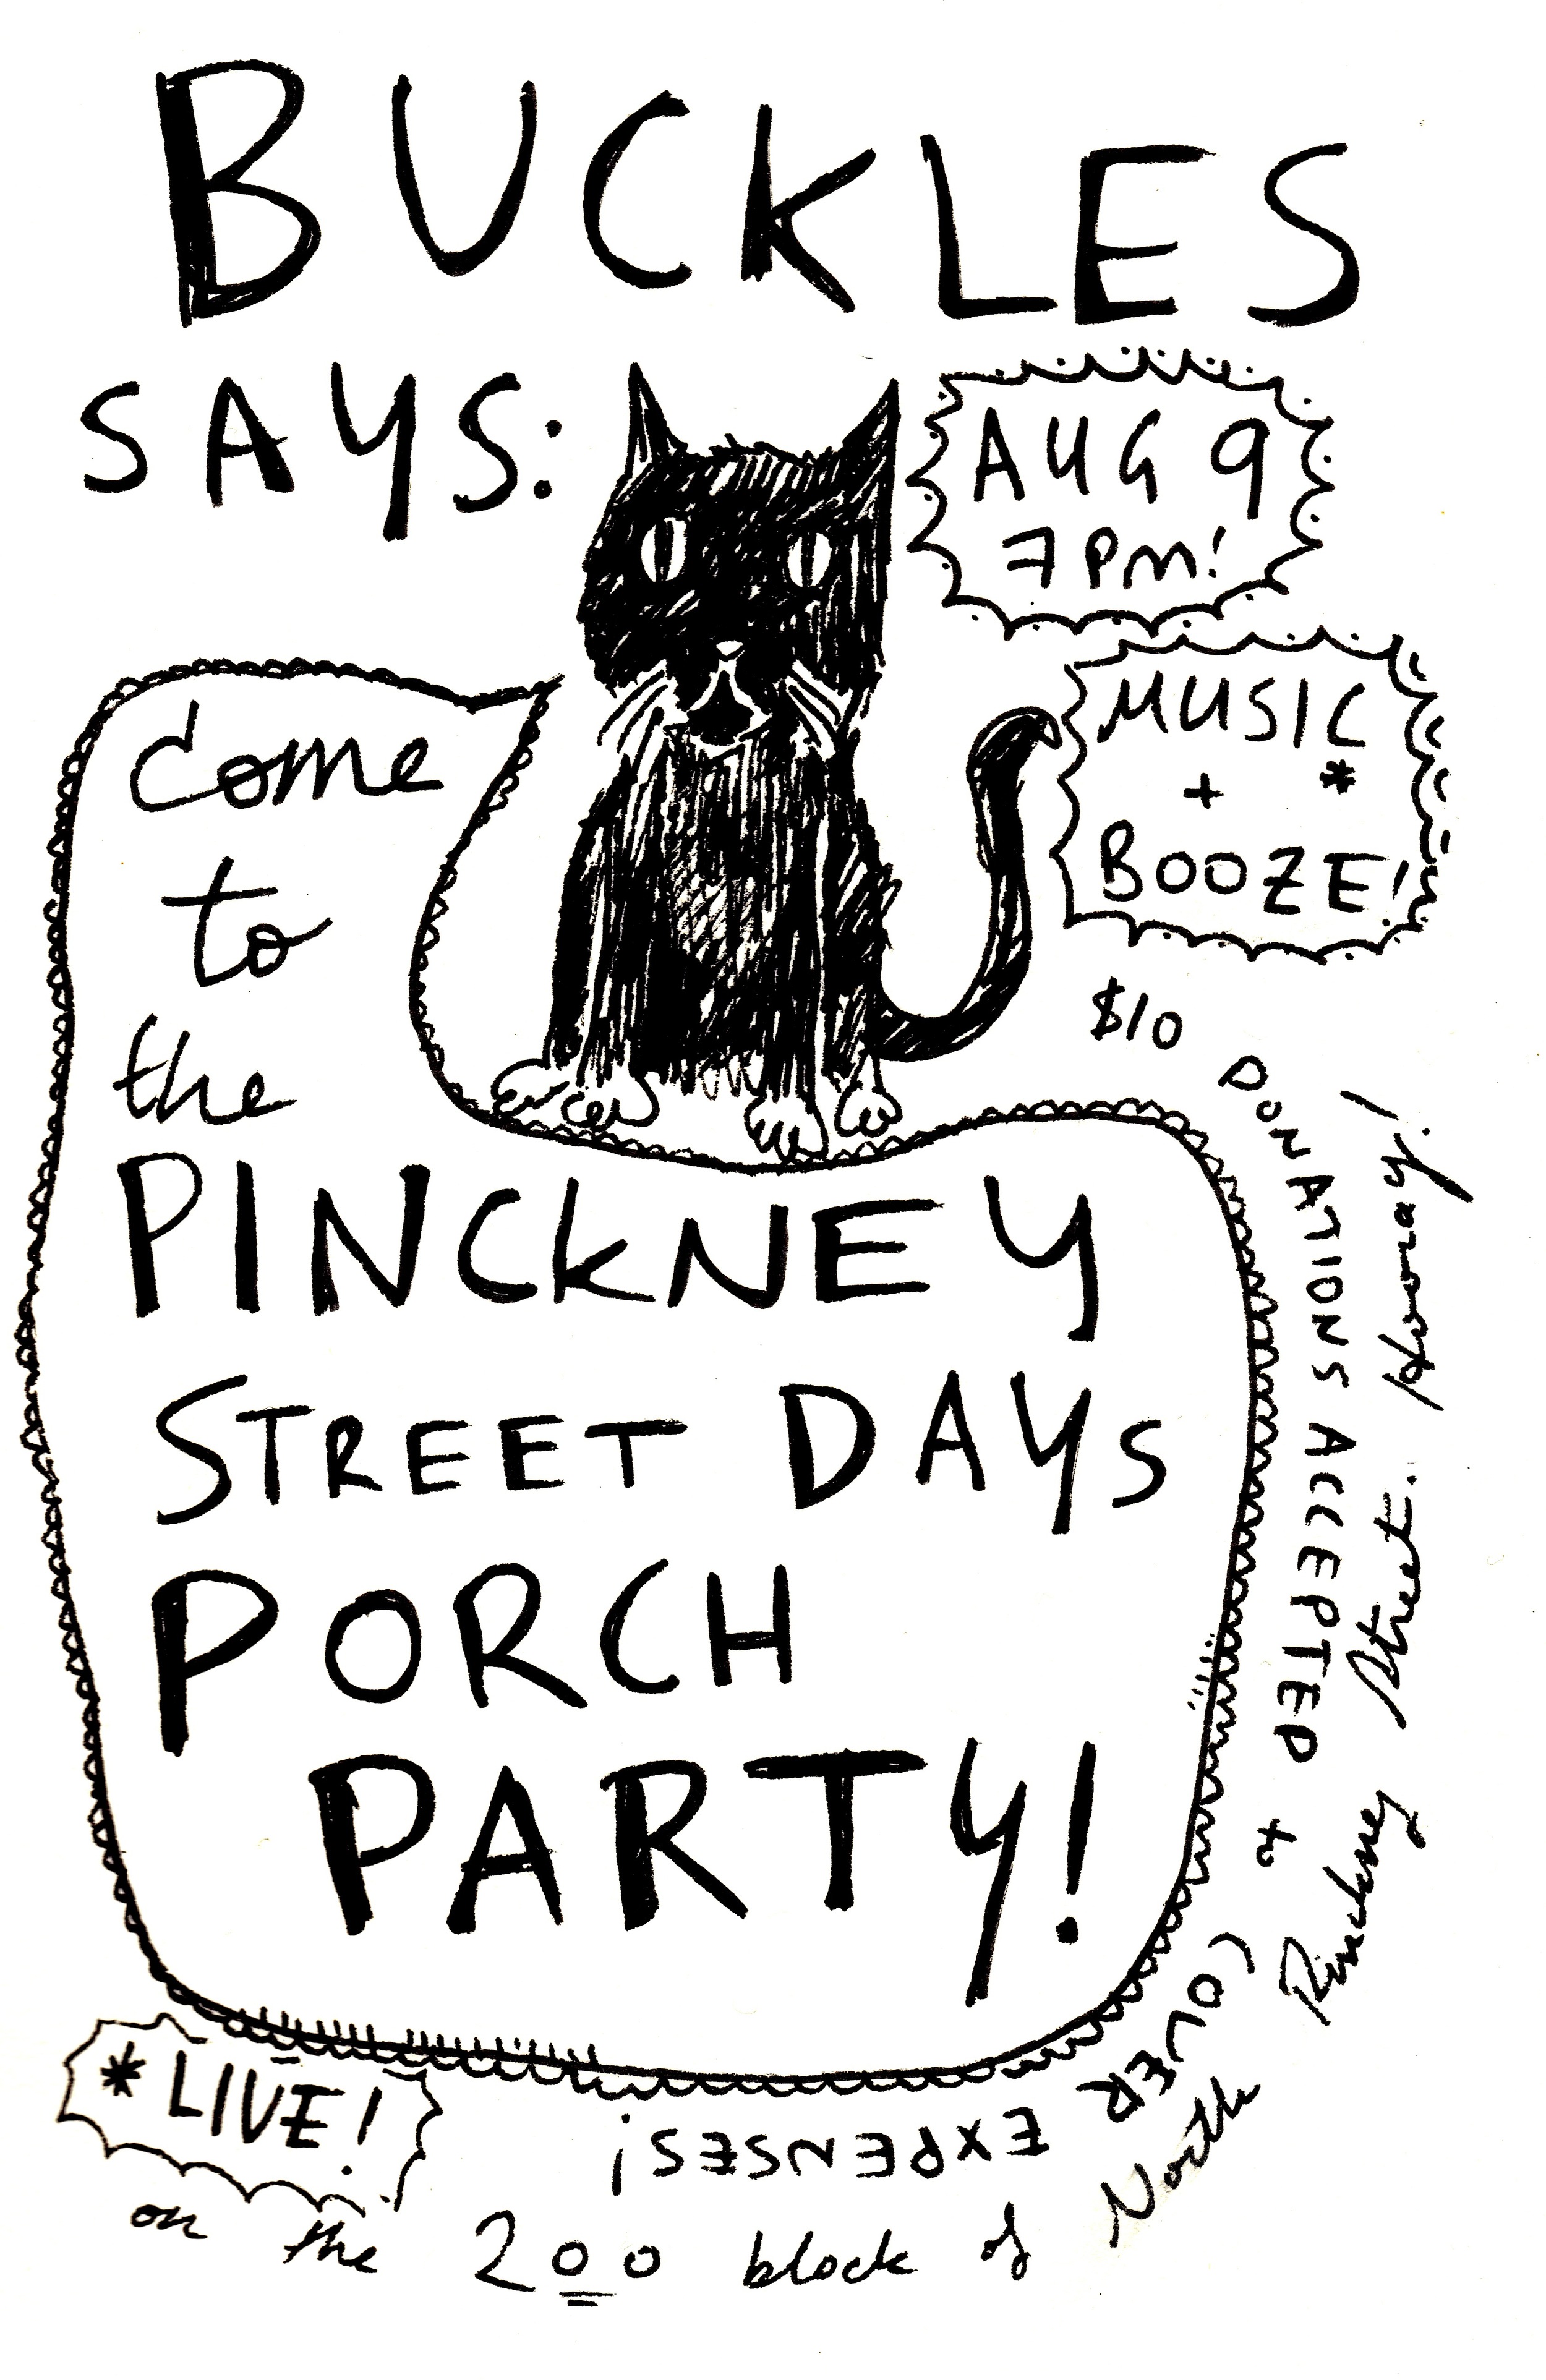 BUCKLES
SAYS:
AUG 9
7PM!
MUSIC*
+
BOOZE!
come
to
the
PINCKNEY
STREET DAYS
PORCH
PARTY!
$10 DONATIONS ACCEPTED to COVER EXPENSES!
*LIVE!
on the 200 block of North Pinckney Street. Hooray!